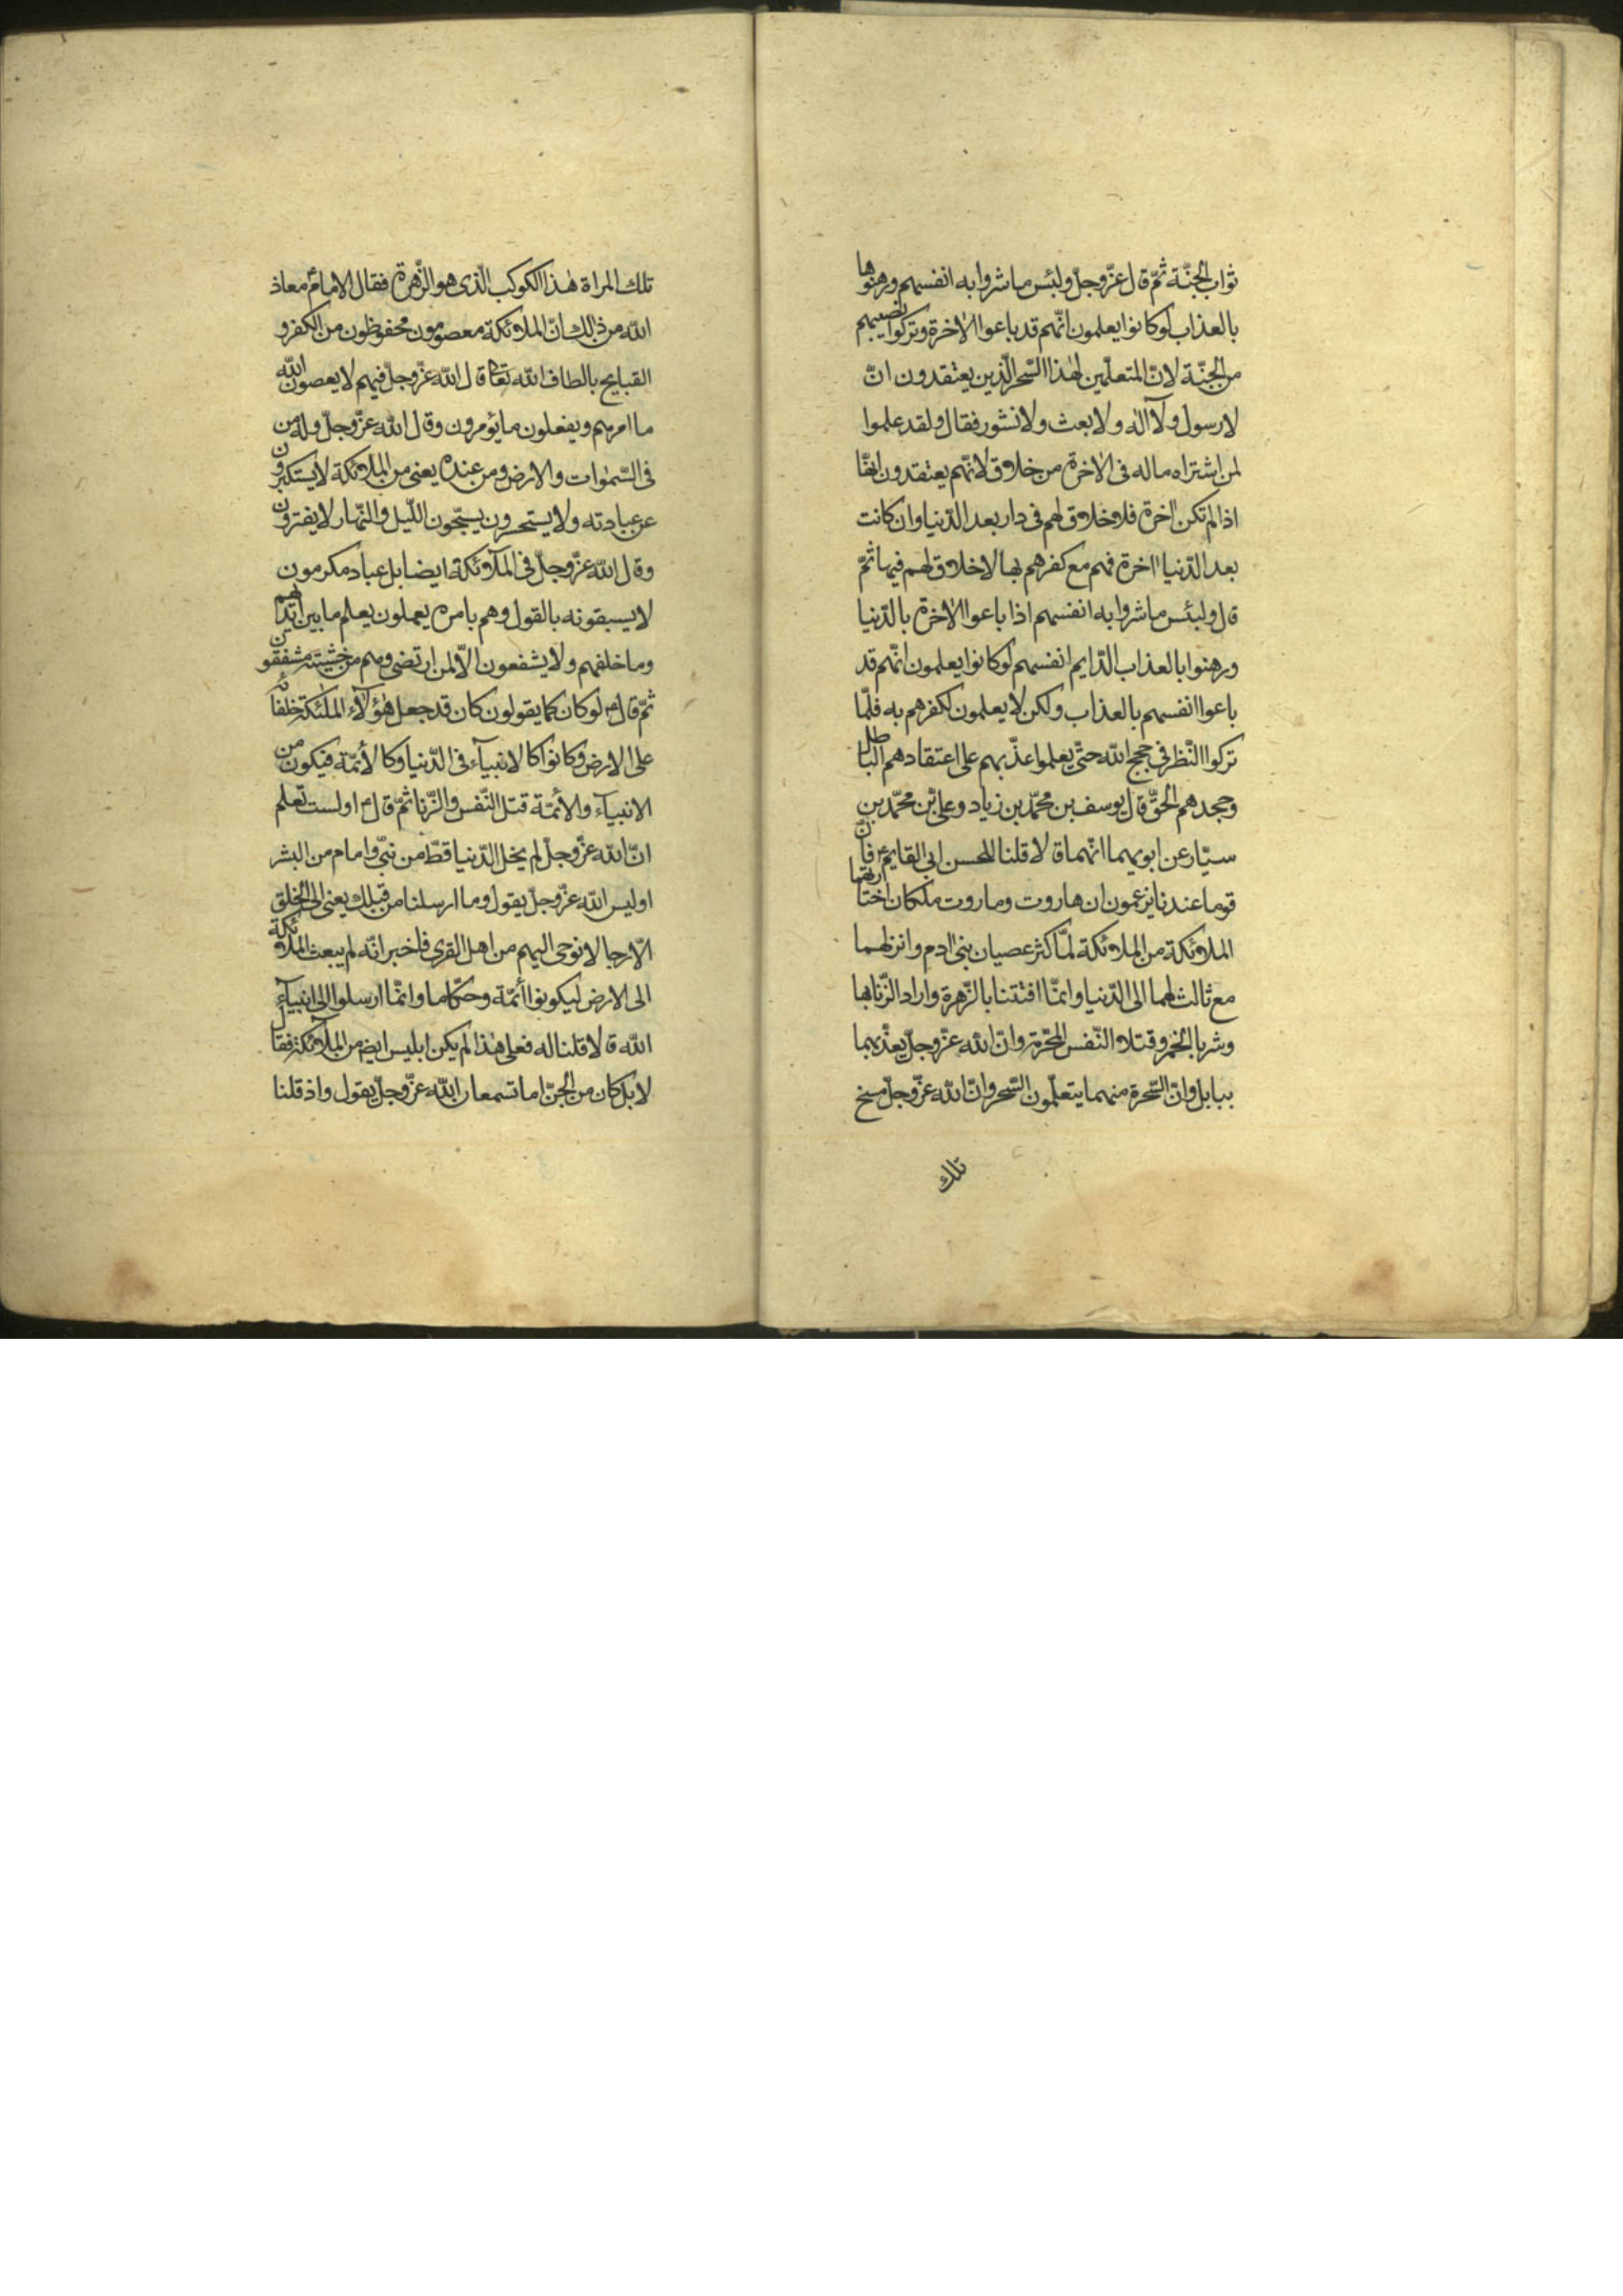 ثواب الجنّة ثمّ قال عزّ وجلّ ولبئس ما شروا به انفسهم ورهنوها
بالعذاب لو كانوا يعلمون انّهم قد باعوا الاخرة وتركوا نصيبهم
من الجنّة لانّ المتعلّمين لهذا السّحر الّذين يعتقدون انّ
لا رسول ولا اله ولا بعث ولا نشور فقال ولقد علموا
لمن اشتراه ماله فى الاخرة من خلاق لانّهم يعتقدون انّها
اذا لم تكن اخرة فلا خلاق لهم فى دار بعد الدّنيا وان كانت
بعد الدّنيا اخرة فهم مع كفرهم بها لا خلاق لهم فيها ثمّ
قال ولبئس ما شروا به انفسهم اذا باعوا الاخرة بالدّنيا
ورهنوا بالعذاب الدّايم انفسهم لو كانوا يعلمون انّهم قد
باعوا انفسهم بالعذاب ولكن لا يعلمون لكفرهم به فلمّا
تركوا النّظر فى حجج اللّه حتّى يعلموا عذّبهم على اعتقادهم الباطل
وجحدهم الحقّ قال يوسف بن محمّد بن زياد وعلى بن محمّد بن
سيّار عن ابويهما انّهما قالا قلنا للحسن ابى القايم ع فانّ
قوما عندنا يزعمون ان هاروت وماروت ملكان اختارتهما
الملائكة من الملائكة لمّا كثر عصيان بنى ادم وانزلهما
مع ثالث لهما الى الدّنيا وانّما افتتنا بالزّهرة واراد الزّنا بها
وشربا الخمر وقتلا النّفس المحرّمة وانّ اللّه عزّ وجلّ يعذّبهما
ببابل وانّ السّحرة منهما يتعلّمون السّحر وانّ اللّه عزّ وجلّ مسخ
تلك
تلك المراة هذا الكوكب الّذى هو الزّهرة فقال الامام ع معاذ
اللّه من ذلك انّ الملائكة معصومون محفوظون من الكفر و
القبايح بالطاف اللّه تعا قال اللّه عزّ وجلّ فيهم لا يعصون اللّه
ما امرهم ويفعلون ما يؤمرون وقال اللّه عزّ وجلّ وله من
فى السّموات والارض ومن عنده يعنى من الملائكة لا يستكبرون
عن عبادته ولا يستحسرون يسبّحون اللّيل والنّهار لا يفترون
وقال اللّه عزّ وجلّ فى الملائكة ايضا بل عباد مكرمون
لا يسبقونه بالقول وهم بامره يعملون يعلم ما بين ايديهم
وما خلفهم ولا يشفعون الّا لمن ارتضى وهم من خشيته مشفقون
ثمّ قال ع لو كان كما يقولون كان قد جعل هؤلاء الملئكة خلفائه
على الارض وكانوا كالانبيآء فى الدّنيا وكالأئمّة فيكون من
الانبيآء والأئمّة قتل النّفس والزّنا ثمّ قال ع اولست تعلم
انّ اللّه عزّ وجلّ لم يخل الدّنيا قطّ من نبىّ وامام من البشر
اوليس اللّه عزّ وجلّ يقول وما ارسلنا من قبلك يعنى الى الخلق
الّا رجالا نوحى اليهم من اهل القرى فاخبر انّه لم يبعث الملائكة
الى الارض ليكونوا أئمّة وحكّاما وانّما ارسلوا الى انبيآء
اللّه قالا قلنا له فعلى هذا لم يكن ابليس ايض من الملائكة فقال
لا بل كان من الجنّ اما تسمعان اللّه عزّ وجلّ يقول واذ قلنا